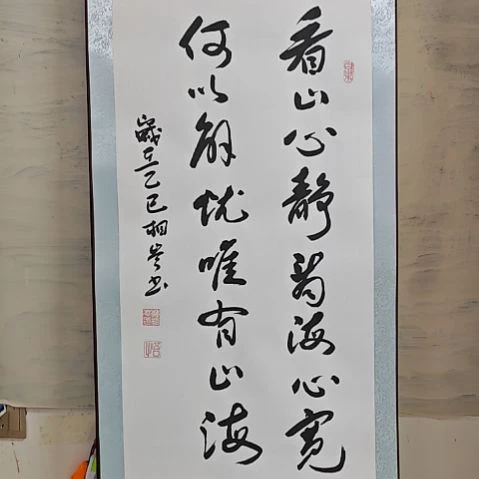 看山心静看海心宽
何以解忧唯有山海
岁在乙巳相岑书